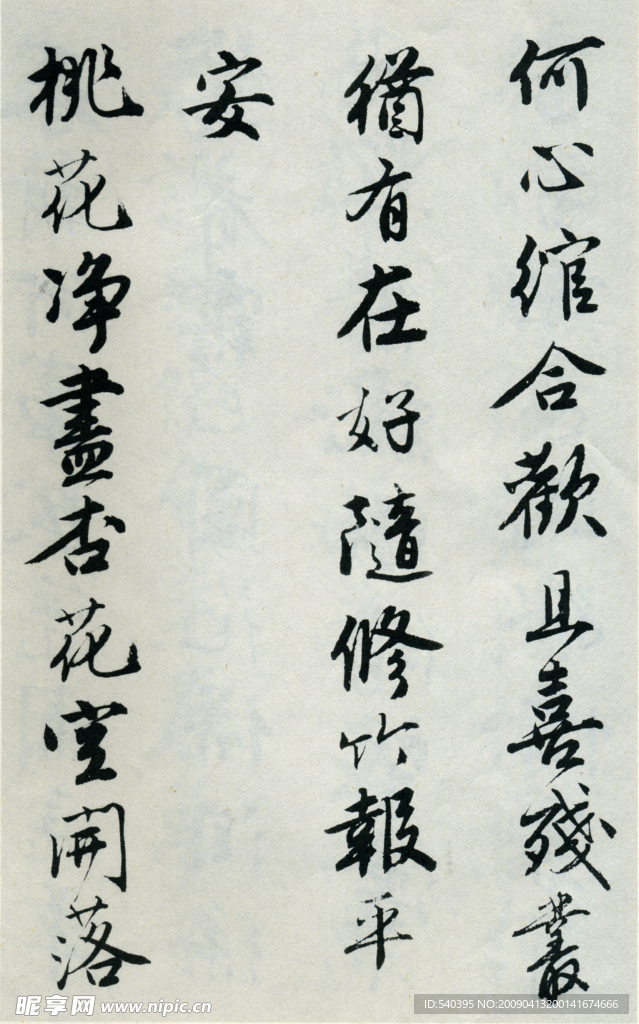 何心綰合歡且喜殘叢
猶有在好隨修竹報平
安
桃花净盡杏花空開落
昵享网 www.nipic.cn
ID:540395 NO:20090413200141674666